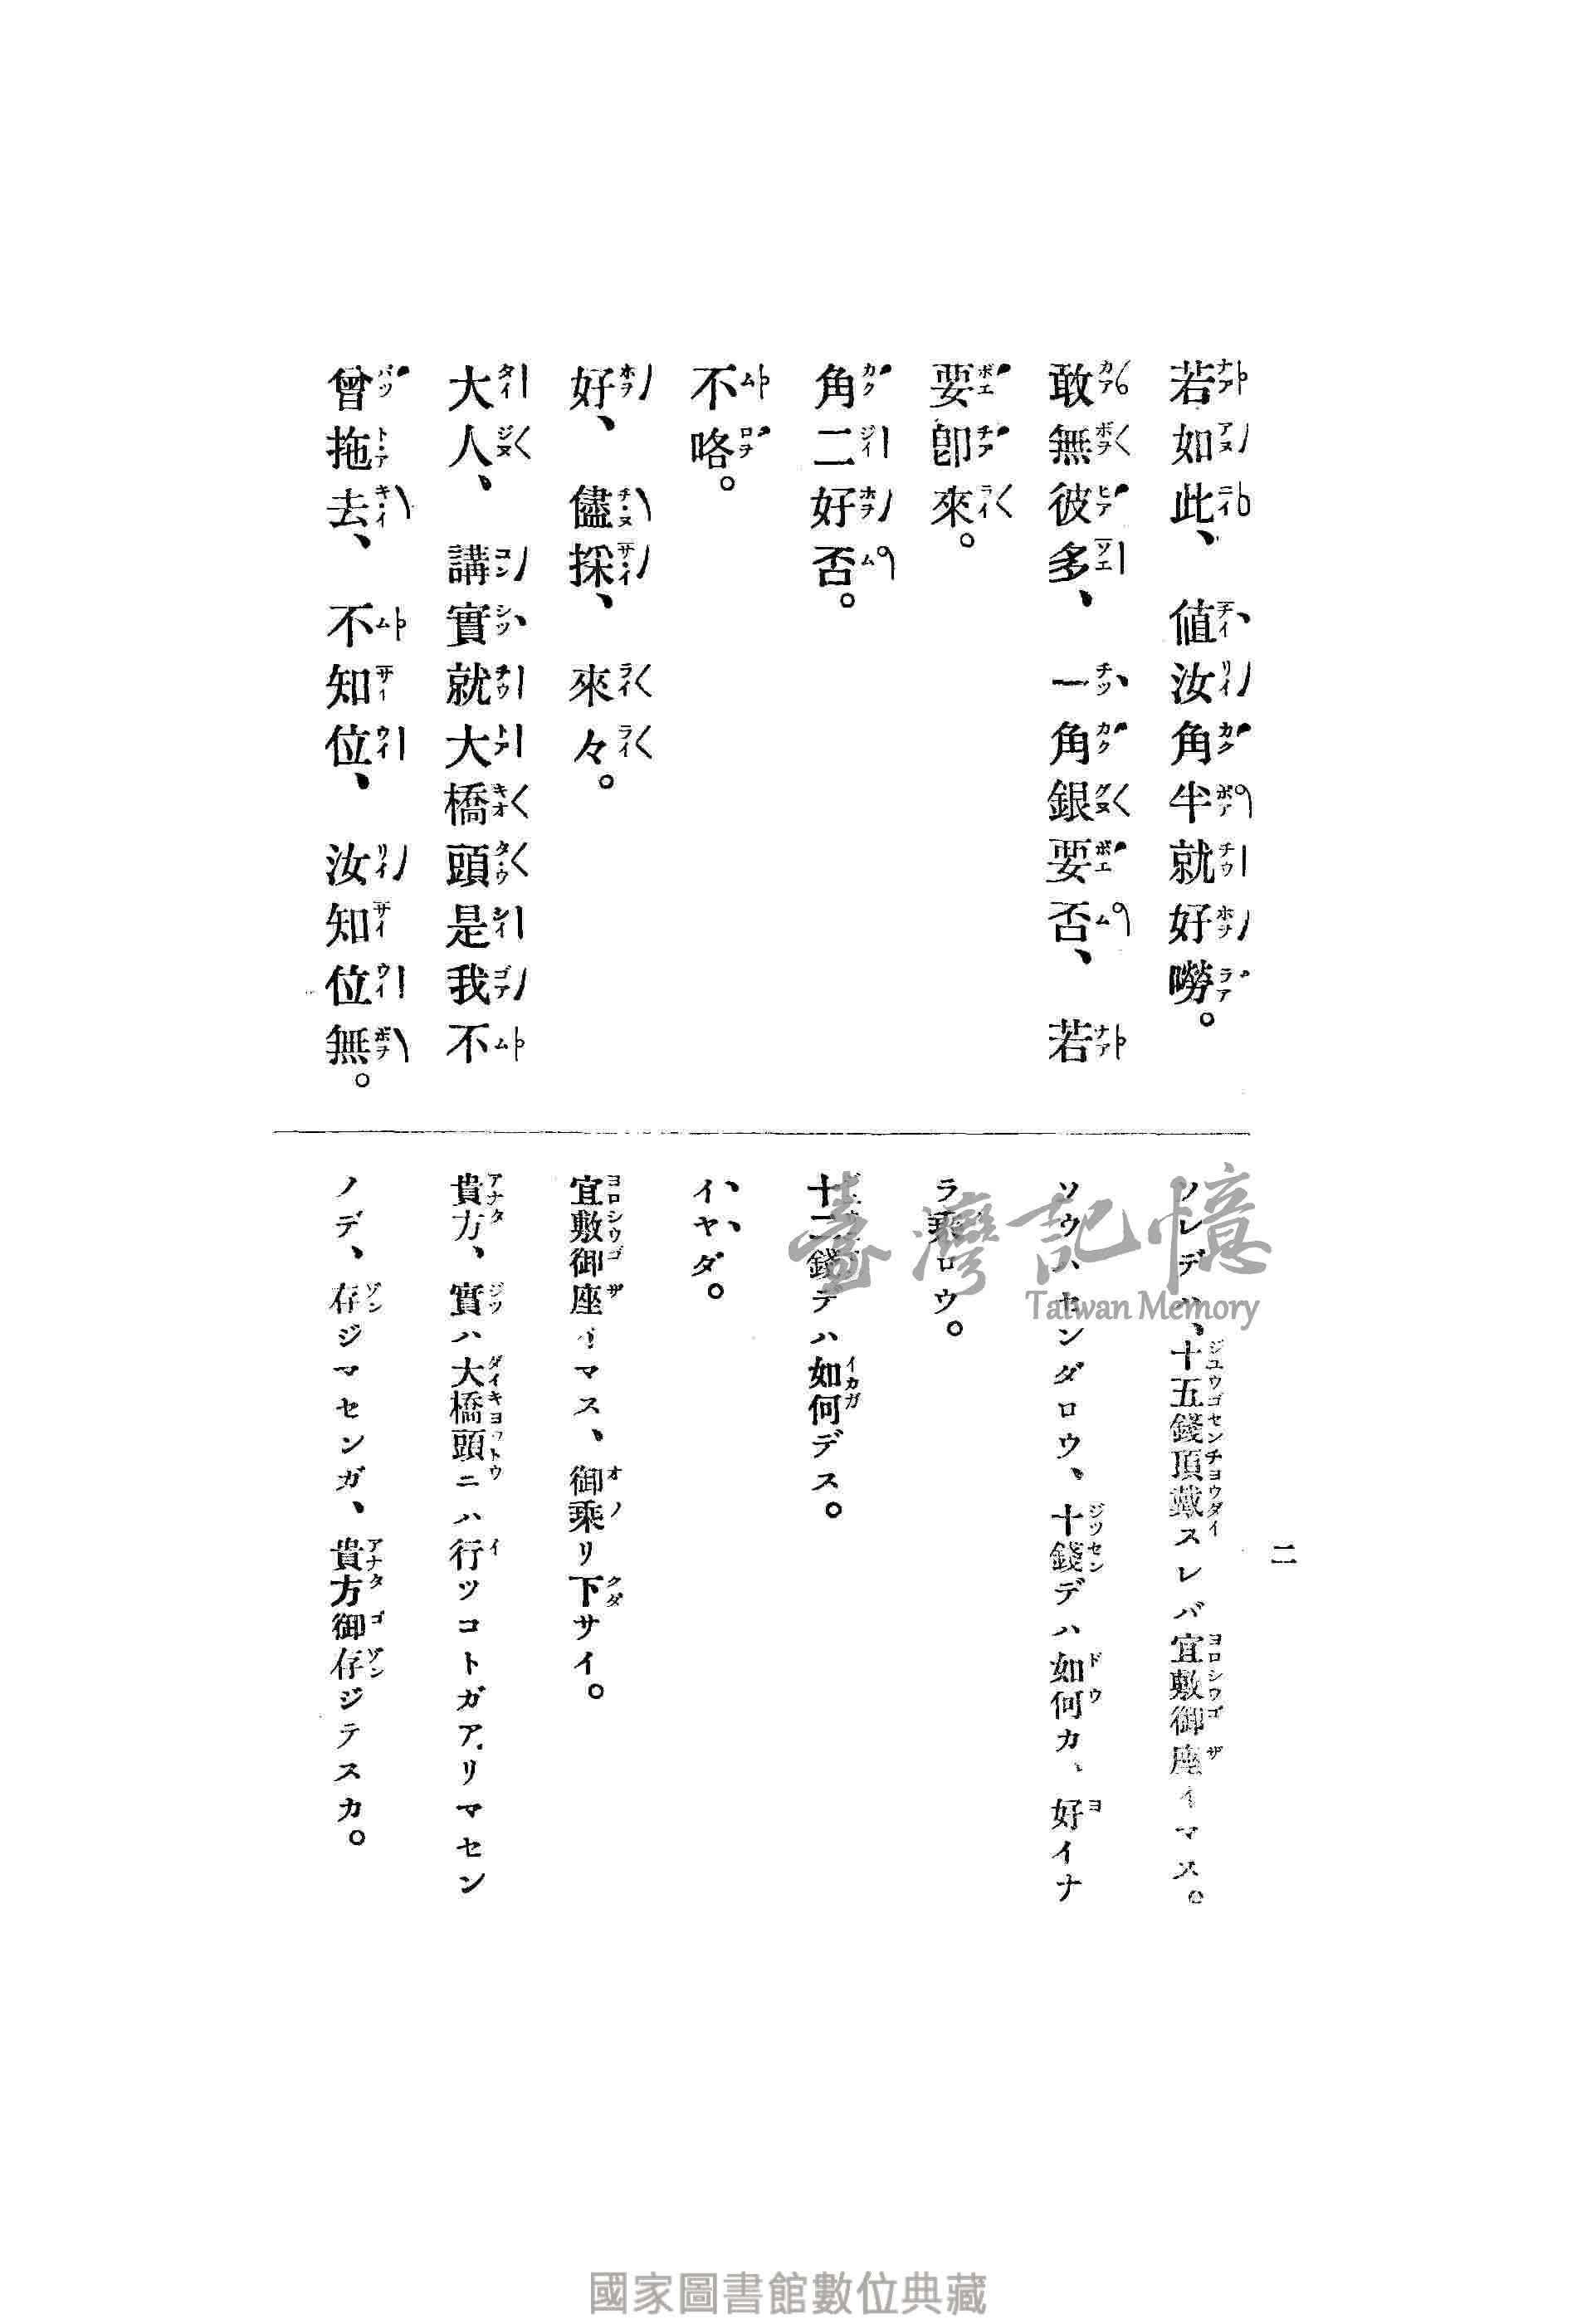 二
若如此、値汝角半就好嘮。
敢無彼多、一角銀要否、若
要卽來。
角二好否。
不咯。
好、儘採、來々。
大人、講實就大橋頭是我不
曾拖去、不知位、汝知位無。
ソレデハ、十五錢頂戴スレバ宜敷御座イマス。
ソウハセンダロウ、十錢デハ如何カ、好イナ
ラ乘ロウ。
十二錢デハ如何デス。
イヤダ。
宜敷御座イマス、御乘リ下サイ。
貴方、實ハ大橋頭ニハ行ツコトガアリマセン
ノデ、存ジマセンガ、貴方御存ジテスカ。
臺灣記憶
Taiwan Memory
國家圖書館數位典藏